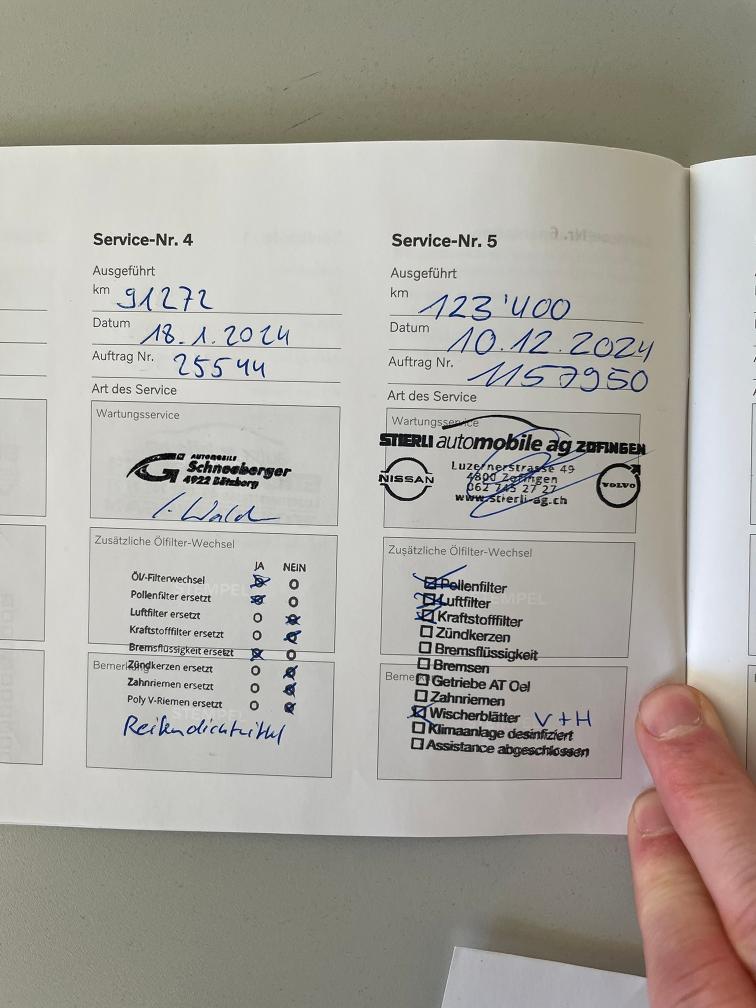 Service-Nr. 4
Ausgeführt
km 91272
Datum 18.1.2024
Auftrag Nr. 25544
Art des Service
Wartungsservice
AUTOMOBILE
Schneeberger
4922 Bützberg
Zusätzliche Ölfilter-Wechsel
JA NEIN
ÖV-Filterwechsel
Pollenfilter ersetzt
Luftfilter ersetzt
Kraftstofffilter ersetzt
Bremsflüssigkeit ersetzt
Bemerkung
Zündkerzen ersetzt
Zahnriemen ersetzt
Poly V-Riemen ersetzt
Reifendichtmittel
Service-Nr. 5
Ausgeführt
km 123'400
Datum 10.12.2024
Auftrag Nr. 1157950
Art des Service
Wartungsservice
STIERLI automobile ag ZOFINGEN
Luzernerstrasse 49
4800 Zofingen
062 745 27 27
www.stierli-ag.ch
NISSAN
VOLVO
Zusätzliche Ölfilter-Wechsel
Pollenfilter
Luftfilter
Kraftstofffilter
Zündkerzen
Bremsflüssigkeit
Bremsen
Bemerkung
Getriebe AT Oel
Zahnriemen
Wischerblätter V+H
Klimaanlage desinfiziert
Assistance abgeschlossen